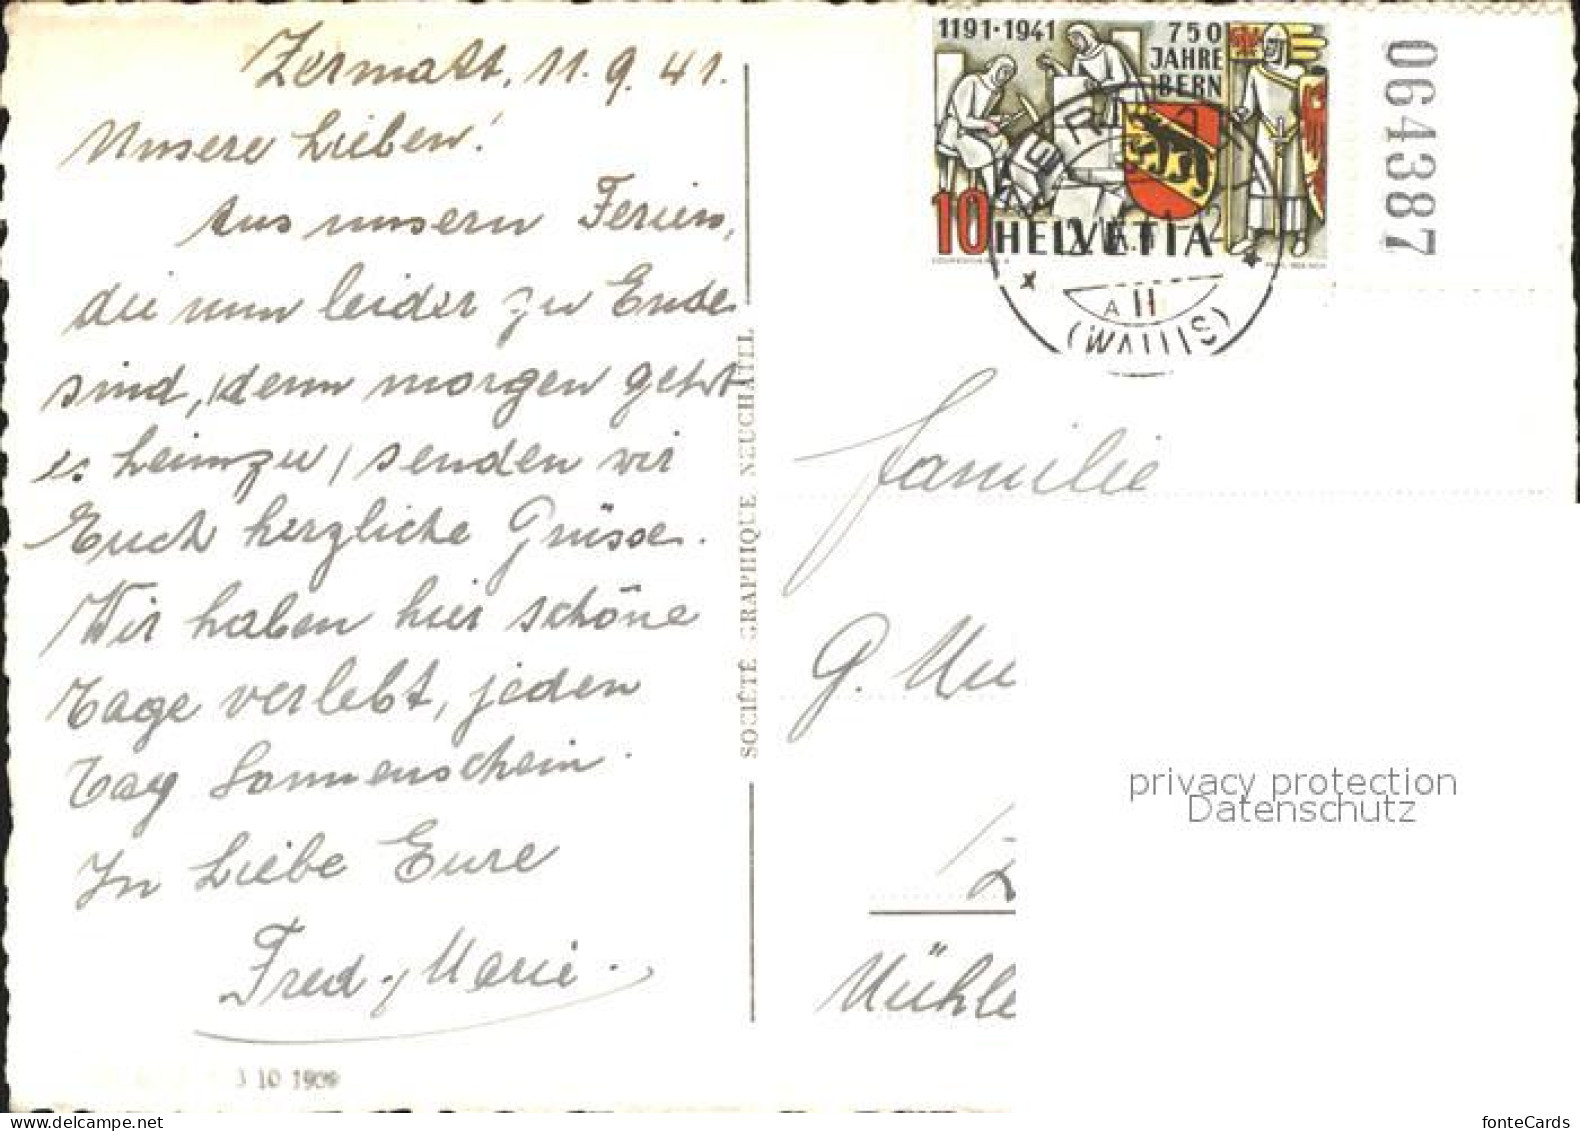 Zermatt, 11. 9. 41.
Unsere Lieben!
Aus unsern Ferien,
die nun leider zu Ende
sind, (denn morgen geht
es heimzu) senden wir
Euch herzliche Grüsse.
Wir haben hier schöne
Tage verlebt, jeden
Tag Sonnenschein.
In Liebe Eure
Fred. Marie.
3 10 1909
SOCIÉTÉ GRAPHIQUE NEUCHATEL
1191·1941 750
JAHRE
BERN
10 HELVETIA
A II
(WALLIS)
064387
Familie
G. Mu
Mühle
privacy protection
Datenschutz
fonteCards